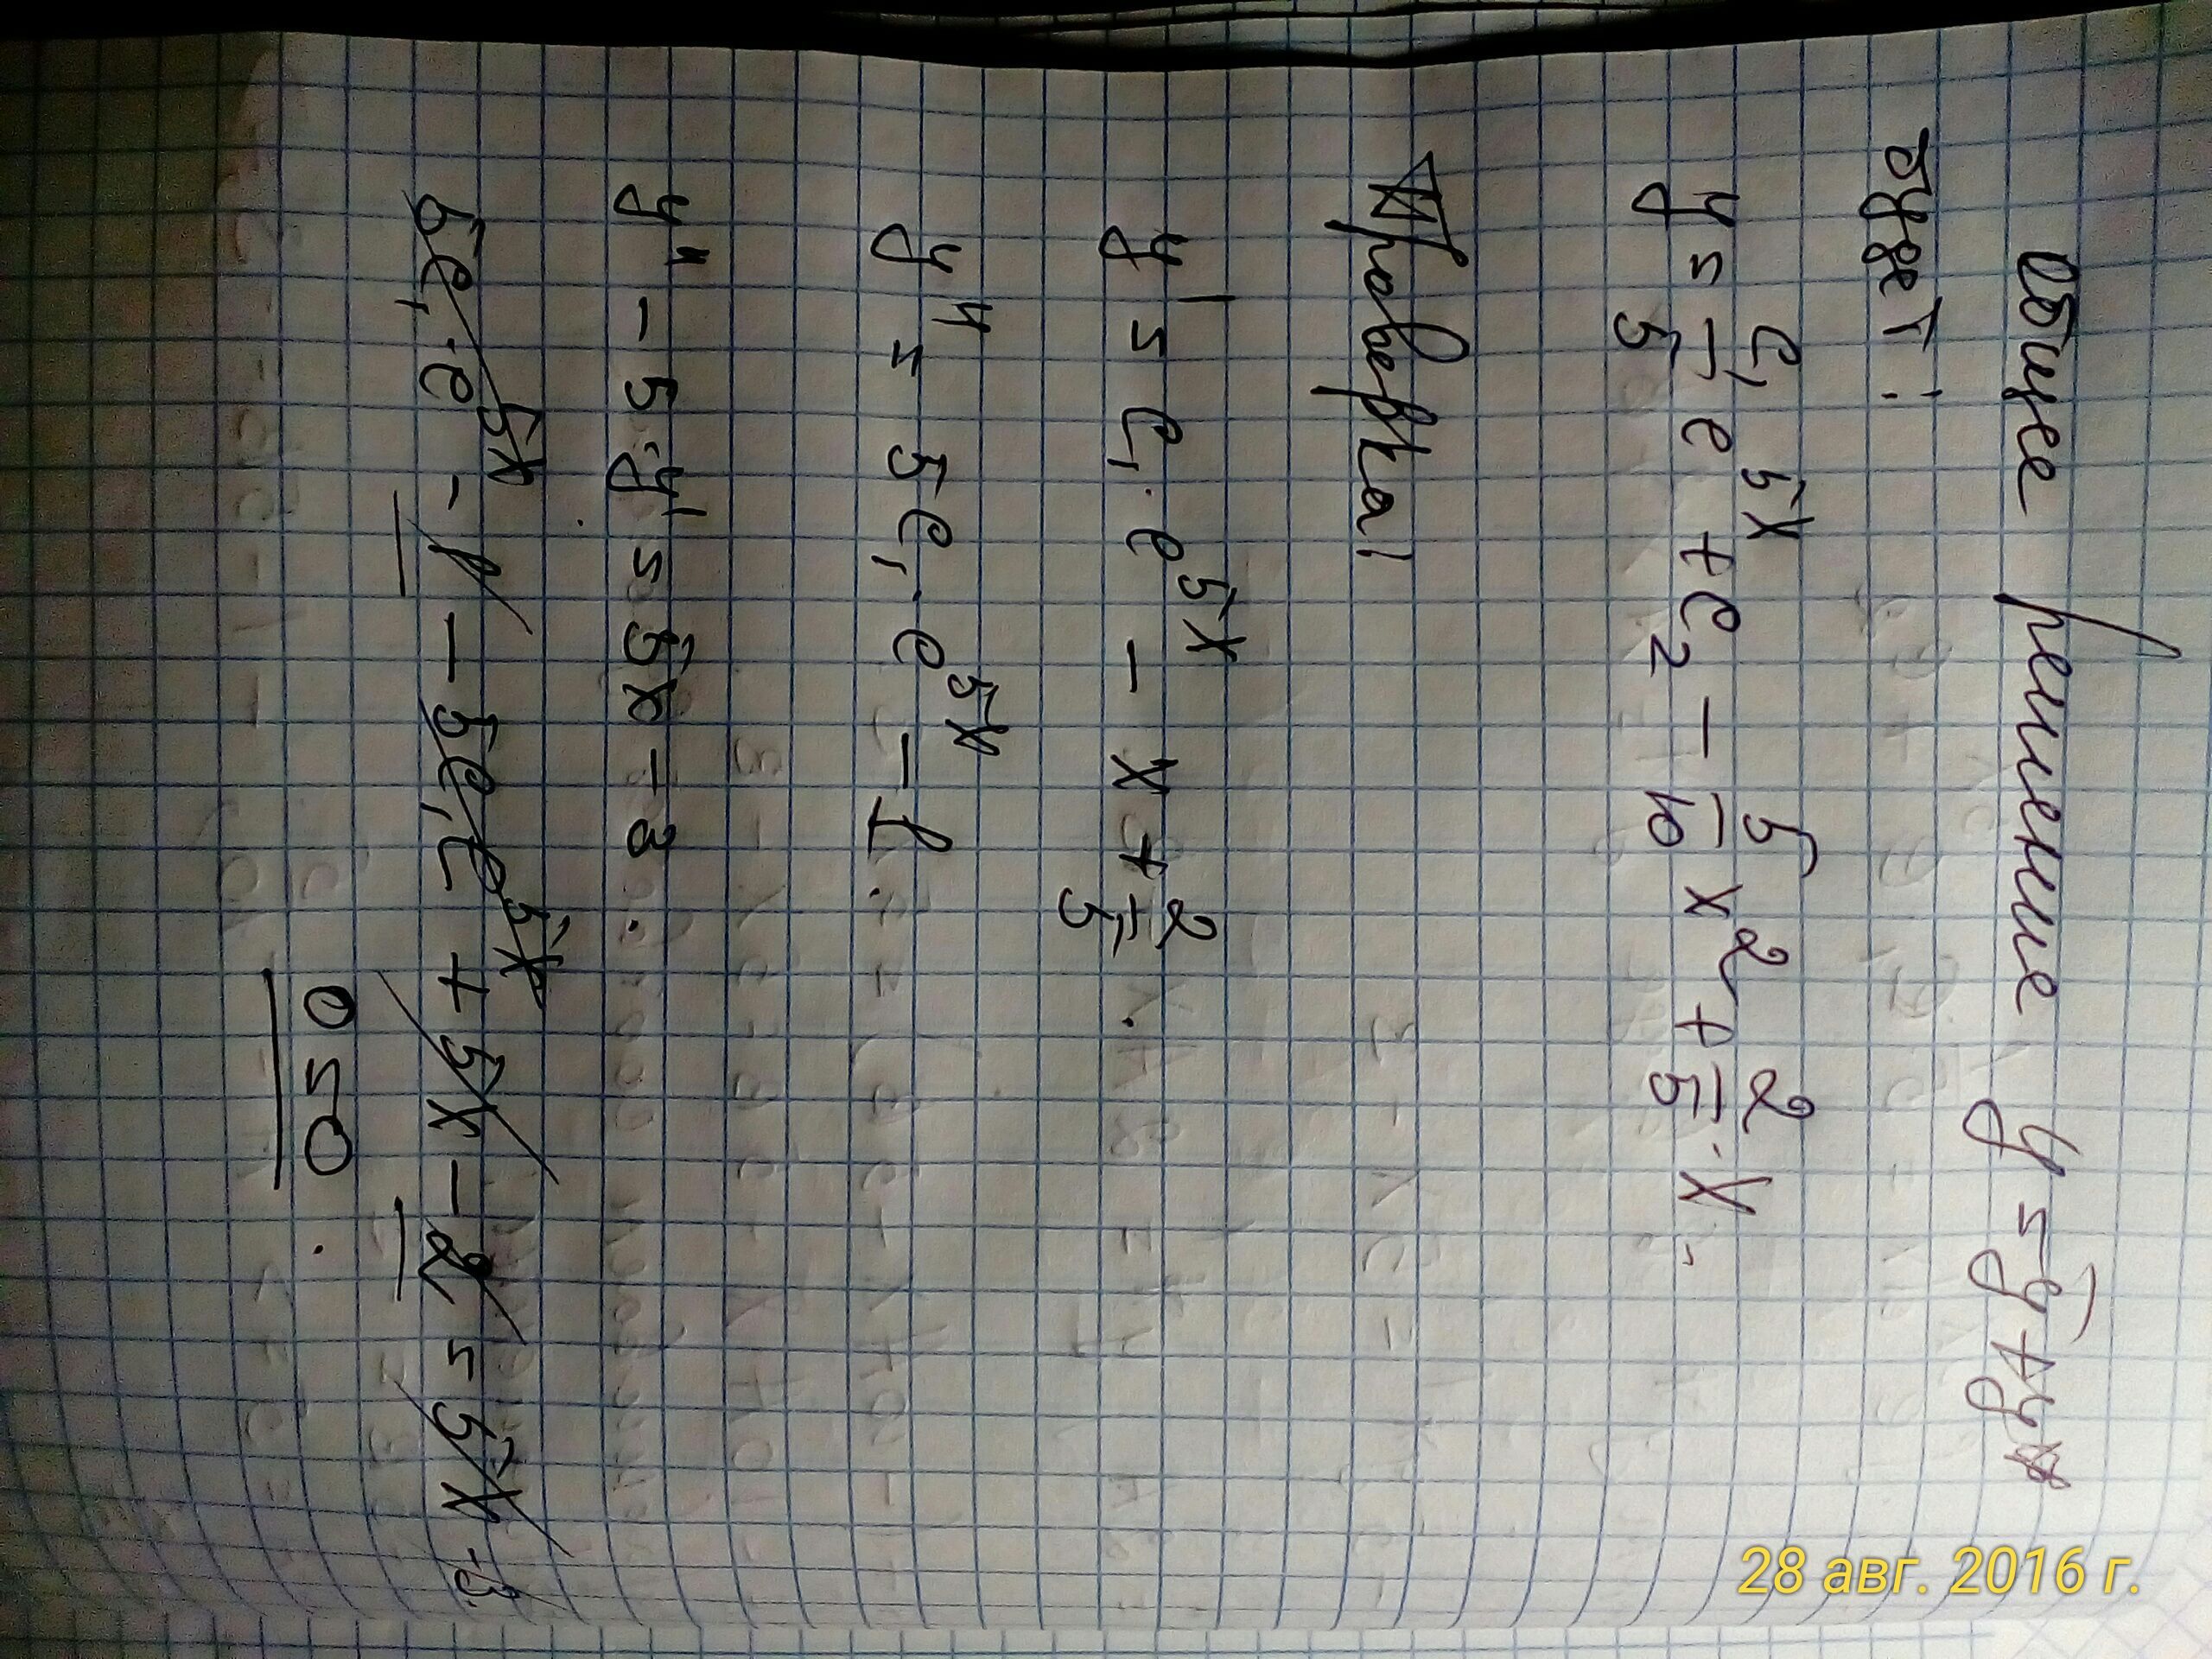 Общее решение y = ȳ + y*
будет:
y = C₁/5 e^5x + C₂ - 5/10 x² + 2/5 · x.
Проверка!
y' = C₁ · e^5x - x + 2/5.
y'' = 5C₁ · e^5x - 1.
y'' - 5 · y' = 5x - 3.
5C₁ · e^5x - 1 - 5C₁ e^5x + 5x - 2 = 5x - 3.
0 = 0.
28 авг. 2016 г.